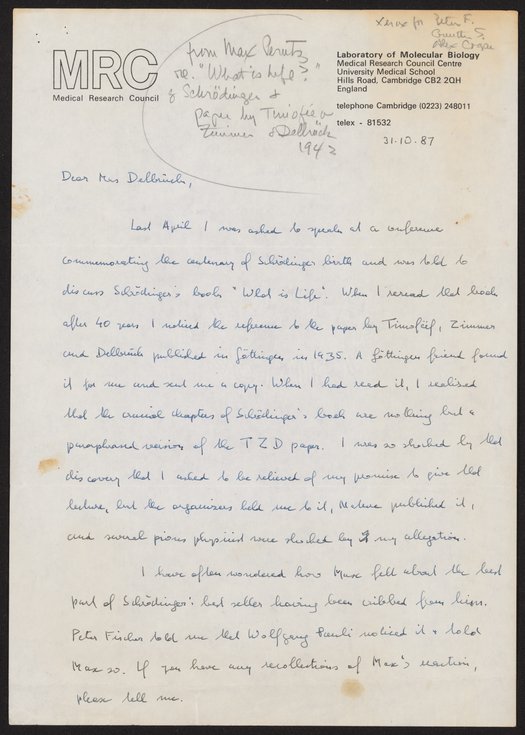 Xerox for Peter F.
Gunther S.
Alex Cogan
MRC
Medical Research Council
from Max Perutz
re. "What is Life?"
of Schrödinger &
paper by Timofée
Zimmer & Delbrück
194
Laboratory of Molecular Biology
Medical Research Council Centre
University Medical School
Hills Road, Cambridge CB2 2QH
England
telephone Cambridge (0223) 248011
telex - 81532
31·10·87
Dear Mrs Delbrück,
Last April I was asked to speak at a conference
commemorating the centenary of Schrödinger birth and was told to
discuss Schrödinger's book "What is Life". When I reread that book
after 40 years I noticed the reference to the paper by Timoféef, Zimmer
and Delbrück published in Göttingen in 1935. A Göttingen friend found
it for me and sent me a copy. When I had read it, I realised
that the crucial chapters of Schrödinger's book are nothing but a
paraphrased version of the TZD paper. I was so shocked by that
discovery that I asked to be relieved of my promise to give that
lecture, but the organizers held me to it, Nature published it,
and several pious physicist were shocked by my allegation.
I have often wondered how Max felt about the best
part of Schrödinger's best seller having been cribbed from him.
Peter Fischer told me that Wolfgang Pauli noticed it & told
Max so. If you have any recollections of Max's reaction,
please tell me.